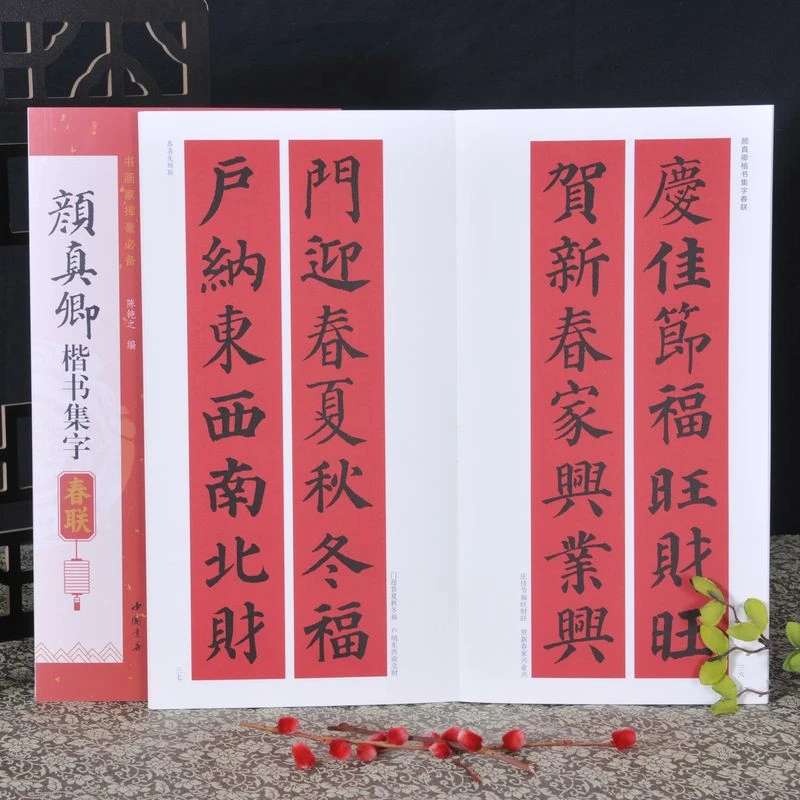 书画家挥毫必备
颜真卿
楷书集字
春联
陈钝之 编
中国书店
颜真卿楷书集字春联
慶佳節福旺財旺
賀新春家興業興
庆佳节福旺财旺 贺新春家兴业兴
三六
恭喜发财联
門迎春夏秋冬福
戶納東西南北財
门迎春夏秋冬福 户纳东西南北财
三七